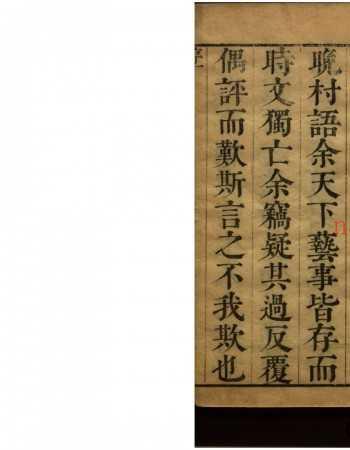 晩村語余天下藝事皆存而
時文獨亡余竊疑其過反覆
偶評而歎斯言之不我欺也